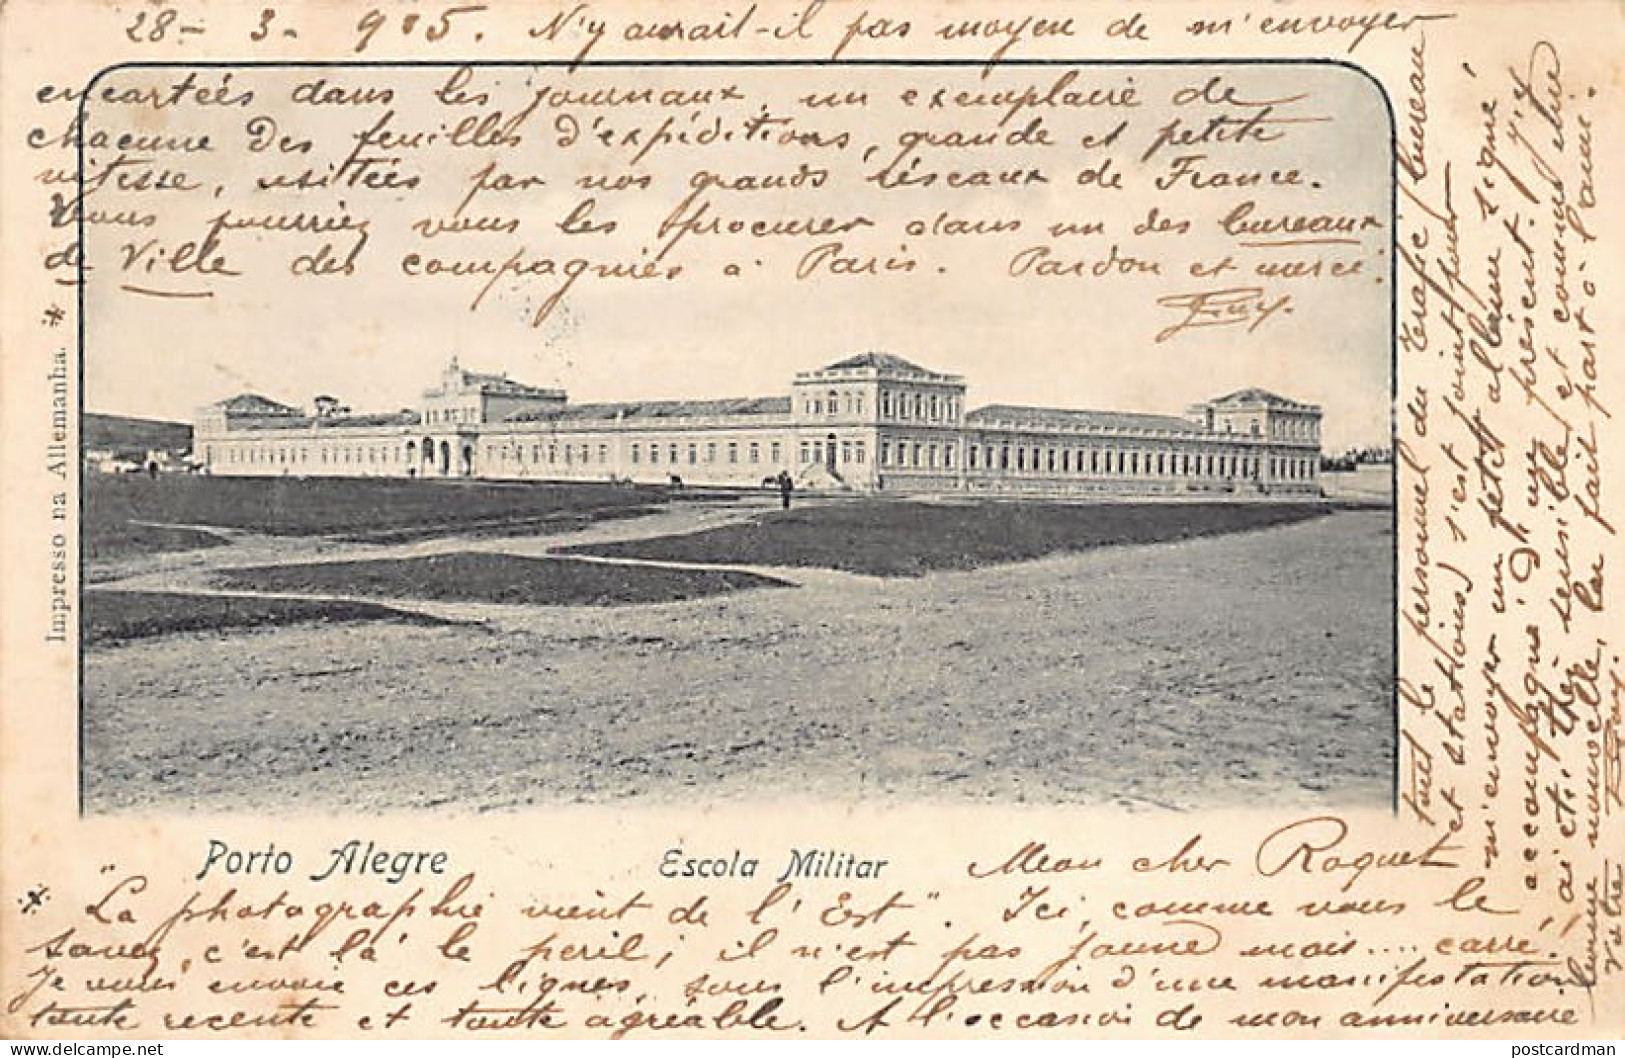 28 - 3 - 905. N'y aurait-il pas moyen de m'envoyer
encartées dans les journaux, un exemplaire de
chacune des feuilles d'expéditions, grande et petite
vitesse, usitées par nos grands réseaux de France.
Vous pourriez vous les procurer dans un des bureaux
de Ville des compagnies à Paris. Pardon et merci.
Impresso na Allemanha.
Porto Alegre
Escola Militar
Mon cher Roquet
"La photographie vient de l'Est". Ici, comme vous le
savez, c'est là le péril; il n'est pas jaune mais.... carré!
Je vous envoie ces lignes, sous l'impression d'une manifestation
toute récente et toute agréable. A l'occasion de mon anniversaire
tout le personnel du Trafic (bureau
et stations) s'est joint pour
m'envoyer un petit album signé
accompagné d'un présent. J'y
ai été très sensible, et comme une
bonne nouvelle, la fait part à l'ami.
Votre